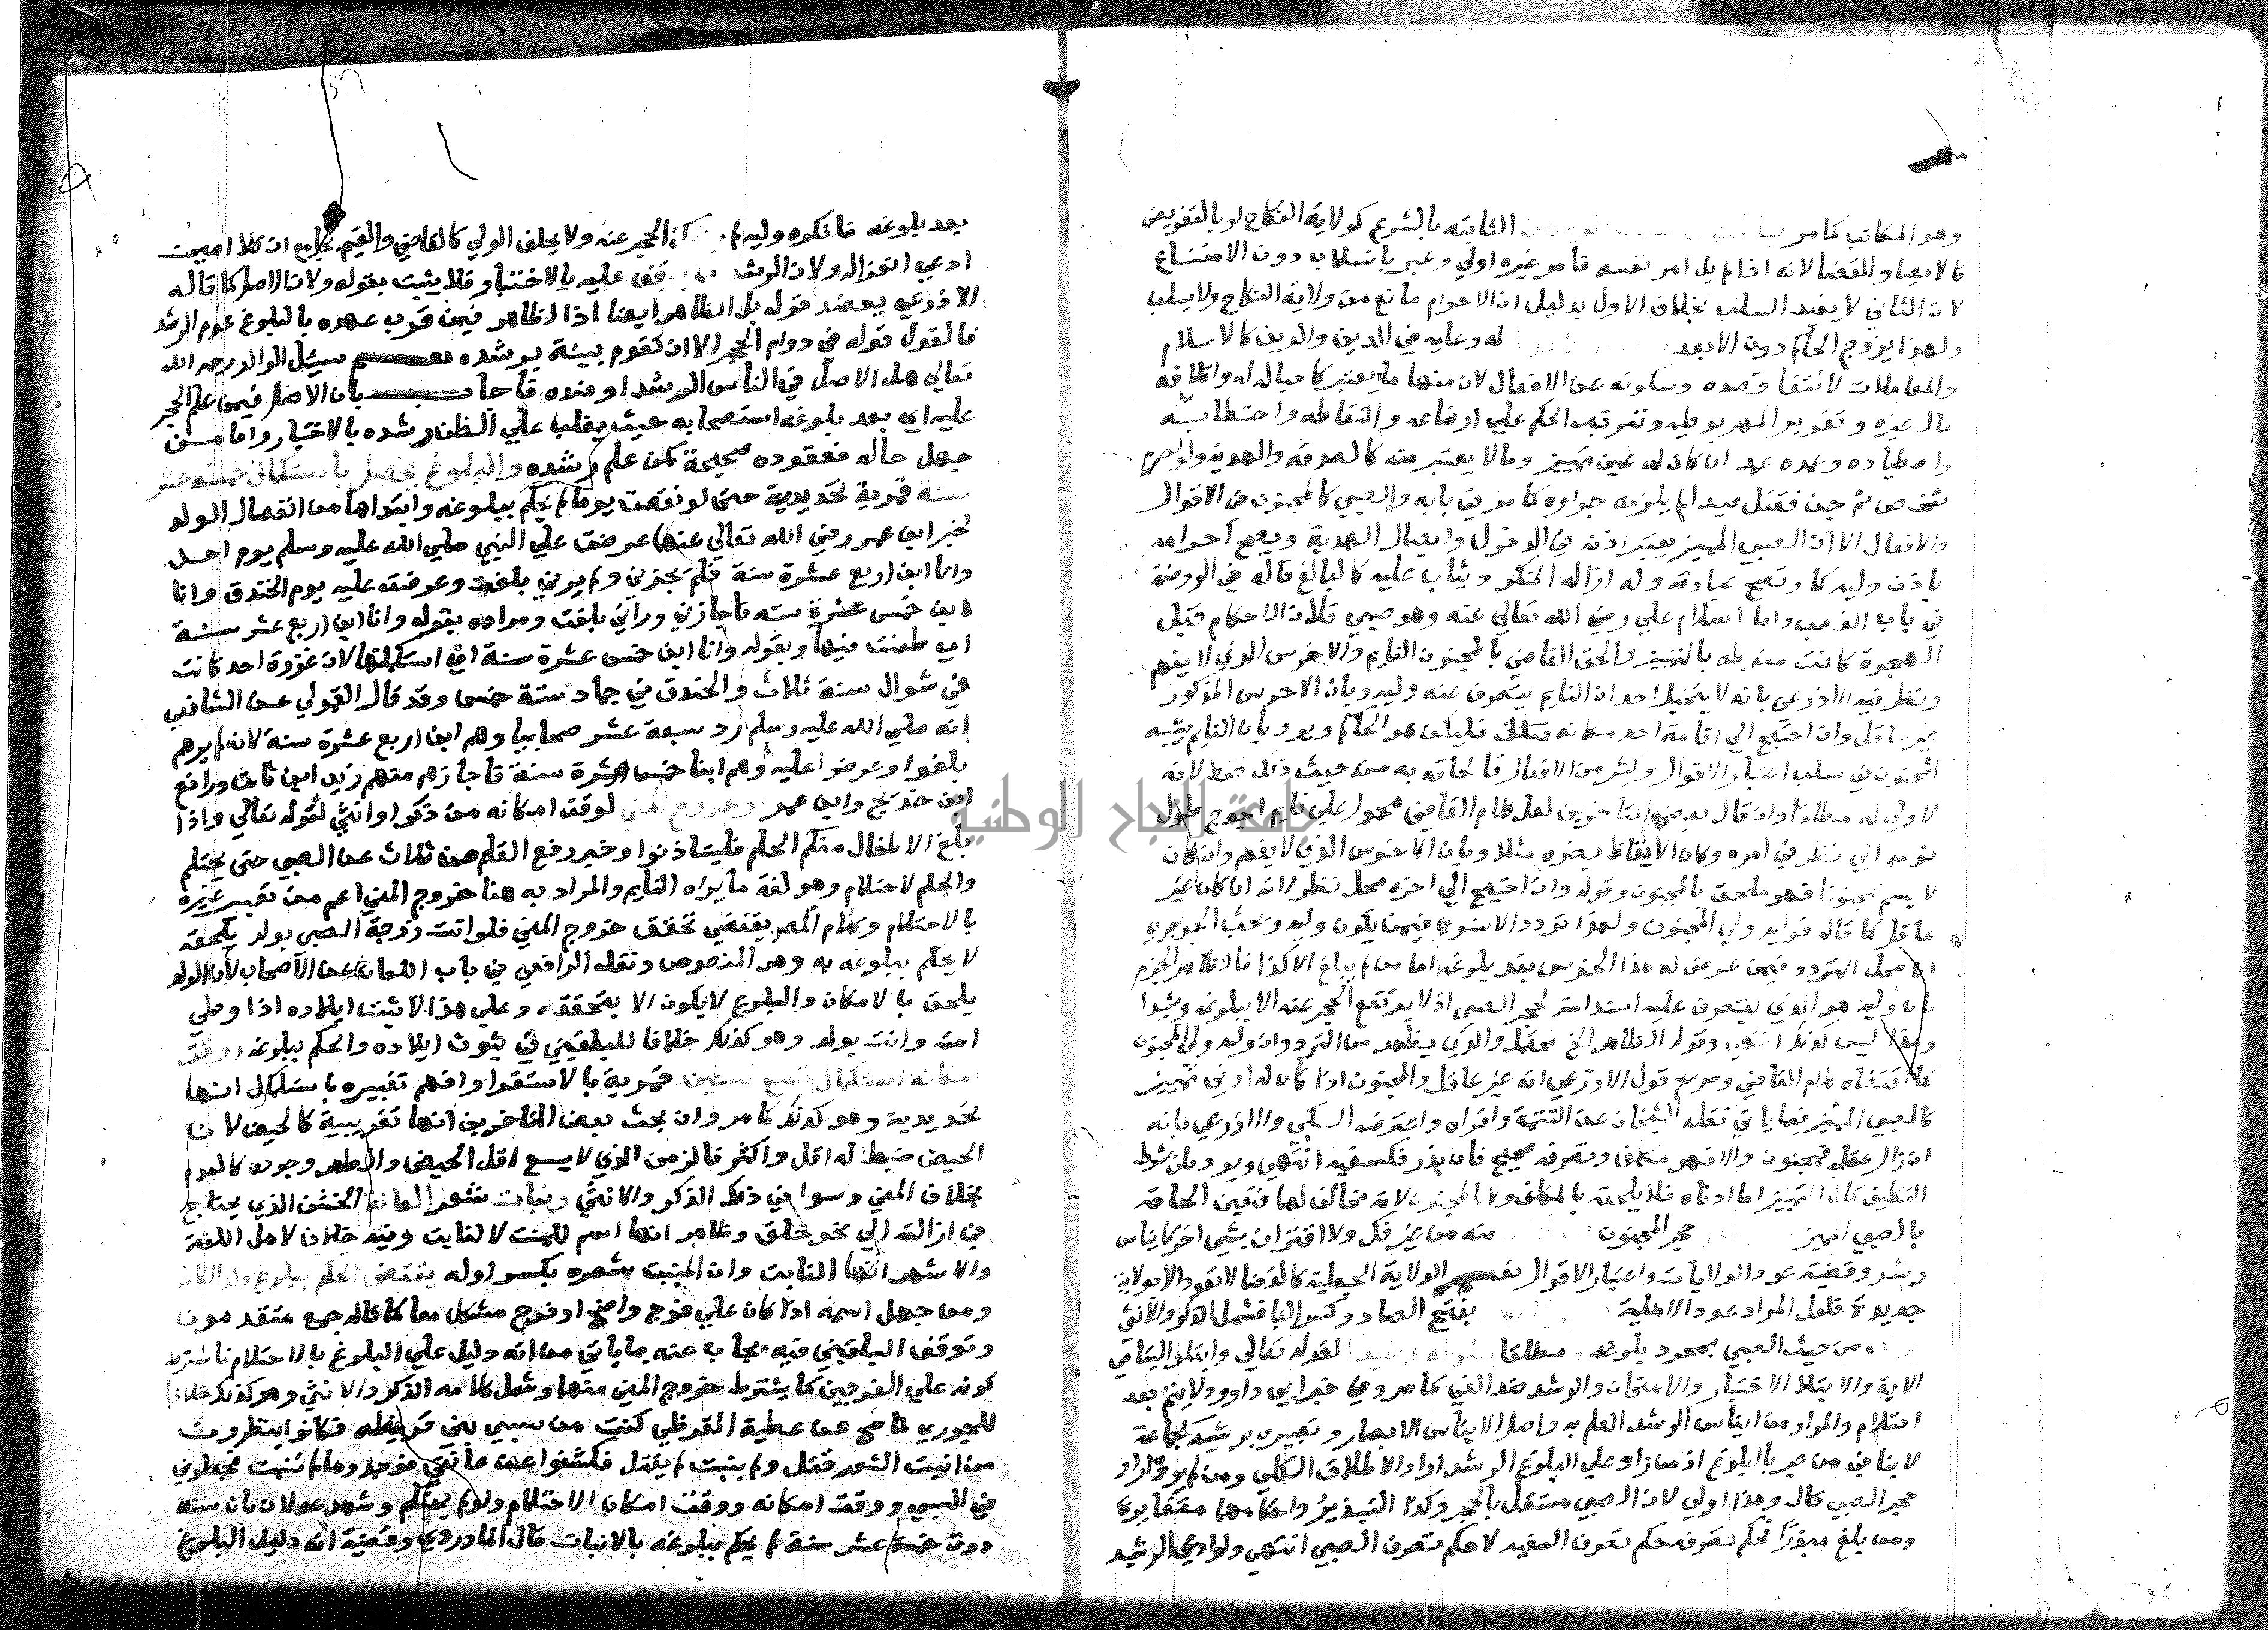 وهو المكاتب كما مر الثابتة بالشرع كولاية النكاح او بالتفويض
كالايصا والقضا لانه اذا لم يل امر نفسه فامر غيره اولي وعبر بانسلاب دون الامتناع
لان الثاني لا يفيد السلب بخلاف الاول بدليل ان الاحرام مانع من ولاية النكاح ولا يسلب
ولهذا يزوج الحاكم دون الابعد له وعليه في الدين والدين كالاسلام
والمعاملات لانتفا قصده وسكوته عن الافعال لان منها ما يعتبر كاحباله واتلافه
مال غيره وتقرير المهر بوطيه وترتب الحكم علي ارضاعه والتقاطه واحتطابه
واصطياده وعمده عمد ان كان له عين تمييز وما لا يعتبر منه كالصدقة والهدية ولو احرم
شخص ثم جن فقتل صيدا لم يلزمه جزاوه كما مر في بابه والصبي كالمجنون في الاقوال
والافعال الا ان الصبي المميز يعتبر اذنه في الدخول وايصال الهدية ويصح احرامه
باذن وليه كما وتصح عبادته وله ازالة المنكر ويثاب عليه كالبالغ قاله في الروضة
في باب الغصب واما اسلام علي رضي الله تعالي عنه وهو صبي فلان الاحكام قبل
الهجرة كانت منوطة بالتمييز والحق القاضي بالمجنون النايم والاخرس الذي لا يفهم
ونظر فيه الاذرعي بانه لا يتخيل احد ان النايم يتصرف عنه وليه وبان الاخرس المذكور
غير عاقل وان احتيج الي اقامة احد مكانه فليكن هو الحاكم ويرد بان النايم يشبه
المجنون في سلب اعتبار الاقوال وكثير من الافعال فالحاقه به من حيث ذلك فقط لانه
لا ولي له مطلقا وان قال بعض المتاخرين لعل كلام القاضي محمول علي نايم احوج طول
نومه الي نظر في امره وكان الايقاظ يضره مثلا وبان الاخرس الذي لا يفهم وان كان
لا يسمي مجنونا فهو ملحق بالمجنون وقوله وان احتيج الي اخره محل نظر اذ انه ان كان غير
عاقل كما قاله فوليه ولي المجنون ولهذا تردد الاسنوي فيمن يكون وليه وبحث الجوجري
ان محل التردد فيمن عرض له هذا الخرس بعد بلوغه اما من لم يبلغ الا كذا فالظاهر الجزم
بان وليه هو الذي يتصرف عليه استدامة لحجر الصبي اذ لا يرتفع الحجر عنه الا ببلوغه رشيدا
وهذا ليس كذلك انتهي وقوله الظاهر الخ محتمل والذي يظهر من التردد ان وليه ولي المجنون
كما افتضاه كلام القاضي وصريح قول الاذرعي انه غير عاقل والمجنون اذا كان له ادني تمييز
كالصبي المميز فيما ياتي نقله الشيخان عن التتمة واقراه واعترضه السبكي والاذرعي بانه
ان زال عقله فمجنون والا فهو مكلف وتصرفه صحيح فان بذر فكسفيه انتهي ويرد بان شرط
التكليف كمال التمييز اما ادناه فلا يلحقه بالمكلف ولا بالمجنون لانه مخالف لهما فتعين الحاقه
بالصبي المميز حجر المجنون منه من غير فك ولا اقتران بشي اخر كايناس
رشد وقضية عود الولايات واعتبار الاقوال نعم الولاية الجعلية كالقضا لا تعود الا بولاية
جديدة فلعل المراد عود الاهلية بفتح الصاد وكسر البا فشمل الذكر والانثي
من حيث الصبي بمجرد بلوغه مطلقا لقوله تعالي وابتلوا اليتامي
الاية والابتلا الاختبار والامتحان والرشد ضد الغي كما مر وفي خبر ابي داوود لا يتم بعد
احتلام والمراد من ايناس الرشد العلم به واصل الايناس الابصار وتعبيره برشيد كجماعة
لا ينافي من عبر بالبلوغ اذ من زاد علي البلوغ الرشد اراد الاطلاق الكلي ومن لم يزد اراد
حجر الصبي قال وهذا اولي لان الصبي مستقل بالحجر وكذا التبذير واحكامهما متغايرة
ومن بلغ مبذرا فحكم تصرفه حكم تصرف السفيه لا حكم تصرف الصبي انتهي ولو ادعي الرشيد
بعد بلوغه فانكره وليه لم ينفك الحجر عنه ولا يحلف الولي كالقاضي والقيم بجامع ان كلا امين
ادعي انعزاله ولان الرشد يوقف عليه بالاختبار فلا يثبت بقوله ولان الاصل كما قاله
الاذرعي يعضد قوله بل الظاهر ايضا اذ الظاهر فيمن قرب عهده بالبلوغ عدم الرشد
فالقول قوله في دوام الحجر الا ان تقوم بينة برشده سيئل الوالد رحمه الله
تعالي هل الاصل في الناس الرشد او ضده فاجاب بان الاصل فيمن علم الحجر
عليه اي بعد بلوغه استصحابه حيث يغلب علي الظن رشده بالاختبار واما من
جهل حاله فعقوده صحيحة كمن علم رشده والبلوغ يحصل باستكمال خمسة عشر
سنة قمرية تحديدية حتي لو نقصت يوما لم يحكم ببلوغه وابتداها من انفصال الولد
لخبر ابن عمر رضي الله تعالي عنهما عرضت علي النبي صلي الله عليه وسلم يوم احد
وانا ابن اربع عشرة سنة فلم يجزني ولم يرني بلغت وعرضت عليه يوم الخندق وانا
ابن خمس عشرة سنة فاجازني وراني بلغت ومراده بقوله وانا ابن اربع عشر سنة
اي طعنت فيها وبقوله وانا ابن خمس عشرة سنة اي استكملتها لان غزوة احد كانت
في شوال سنة ثلاث والخندق في جماد سنة خمس وقد قال القمولي عن الشافعي
انه صلي الله عليه وسلم رد سبعة عشر صحابيا وهم ابن اربع عشرة سنة لانه لم يرهم
بلغوا وعرضوا عليه وهم ابنا خمس عشرة سنة فاجازهم منهم زيد ابن ثابت ورافع
ابن خديج وابن عمر وخروج المني لوقت امكانه من ذكر او انثي لقوله تعالي واذا
بلغ الاطفال منكم الحلم فليستاذنوا وخبر رفع القلم عن ثلاث عن الصبي حتي يحتلم
والحلم لاحتلام وهو لغة ما يراه النايم والمراد به هنا خروج المني اعم من تعبير غيره
بالاحتلام وكلام المصـ يقتضي تحقق خروج المني فلو اتت زوجة الصبي بولد يلحقه
لا يحكم ببلوغه به وهو المنصوص ونقله الرافعي في باب اللعان عن الاصحاب لان الولد
يلحق بالامكان والبلوغ لا يكون الا بتحققه وعلي هذا لا يثبت ايلاده اذا وطي
امته واتت بولد وهو كذلك خلافا للبلقيني في ثبوت ايلاده والحكم ببلوغه ووقت
امكانه استكمال تسع سنين قمرية بالاستقرا وافهم تعبيره باستكمال انها
تحديدية وهو كذلك كما مر وان بحث بعض المتاخرين انها تقريبية كالحيض لان
الحيض ضبط له اقل واكثر فالزمن الذي لا يسع اقل الحيض والطهر وجوده كالعدم
بخلاف المني وسوا في ذلك الذكر والانثي ونبات شعر العانة الخشن الذي يحتاج
في ازالته الي نحو حلق وظاهر انها اسم للمنبت لا للنابت وفيه خلاف لاهل اللغة
والاشهر انها النابت وان المنبت شعره بكسر اوله يقتضي الحكم ببلوغ ولد الكافر
ومن جهل اسلامه اذا كان علي فرج واضح او فرج مشكل معا كما قاله جمع متقدمون
وتوقف البلقيني فيه يجاب عنه بما ياتي من انه دليل علي البلوغ بالاحتلام فاشترط
كونه علي الفرجين كما يشترط خروج المني منهما وشمل كلامه الذكر والانثي وهو كذلك خلافا
للجوري لما صح عن عطية القرظي كنت من سبي بني قريظة فكانوا ينظرون
من انبت الشعر قتل ولم ينبت لم يقتل فكشفوا عن عانتي فوجدوها لم تنبت فجعلوني
في السبي ووقت امكانه ووقت امكان الاحتلام ولو لم يحتلم وشهد عدلان بان سنه
دون خمسة عشر سنة لم يحكم ببلوغه بالانبات قال الماوردي وقضية انه دليل البلوغ
جامعة النجاح الوطنية